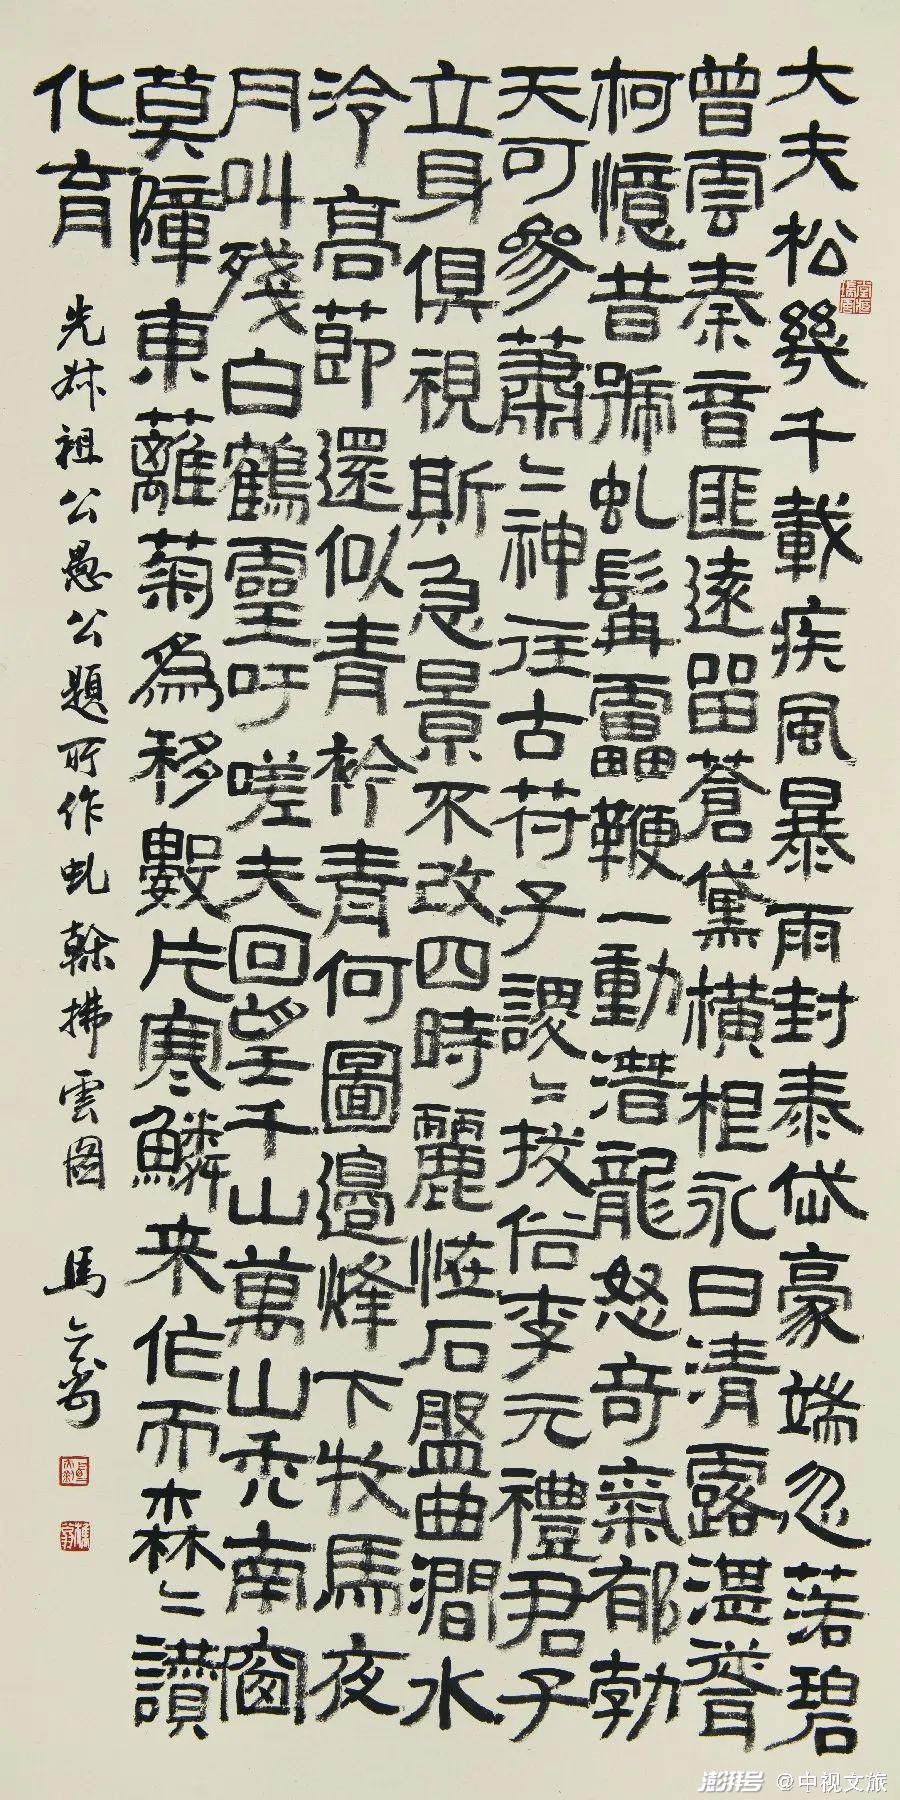 大夫松幾千載疾風暴雨封泰岱豪端忽落碧
曾雲秦音匪遠留蒼黛橫柤永日清露湛普
柯憶昔號虬髯靁鞭一動潛龍怒奇氣郁勃
天可參蕭〻神往古苻子謖〻拔俗李元禮君子
立身俱視斯急景不改四時麗恠石盤曲澗水
泠高莭還似青衿青何圖邉烽下牧馬夜
月叫殘白鶴靈吁嗟夫回望千山萬山禿南窗
莫障東蘺菊為移數片寒鱗來伫而森〻讃
化育
先叔祖公愚公題所作虬榦拂雲圖 馬亦
澎湃号 @中视文旅